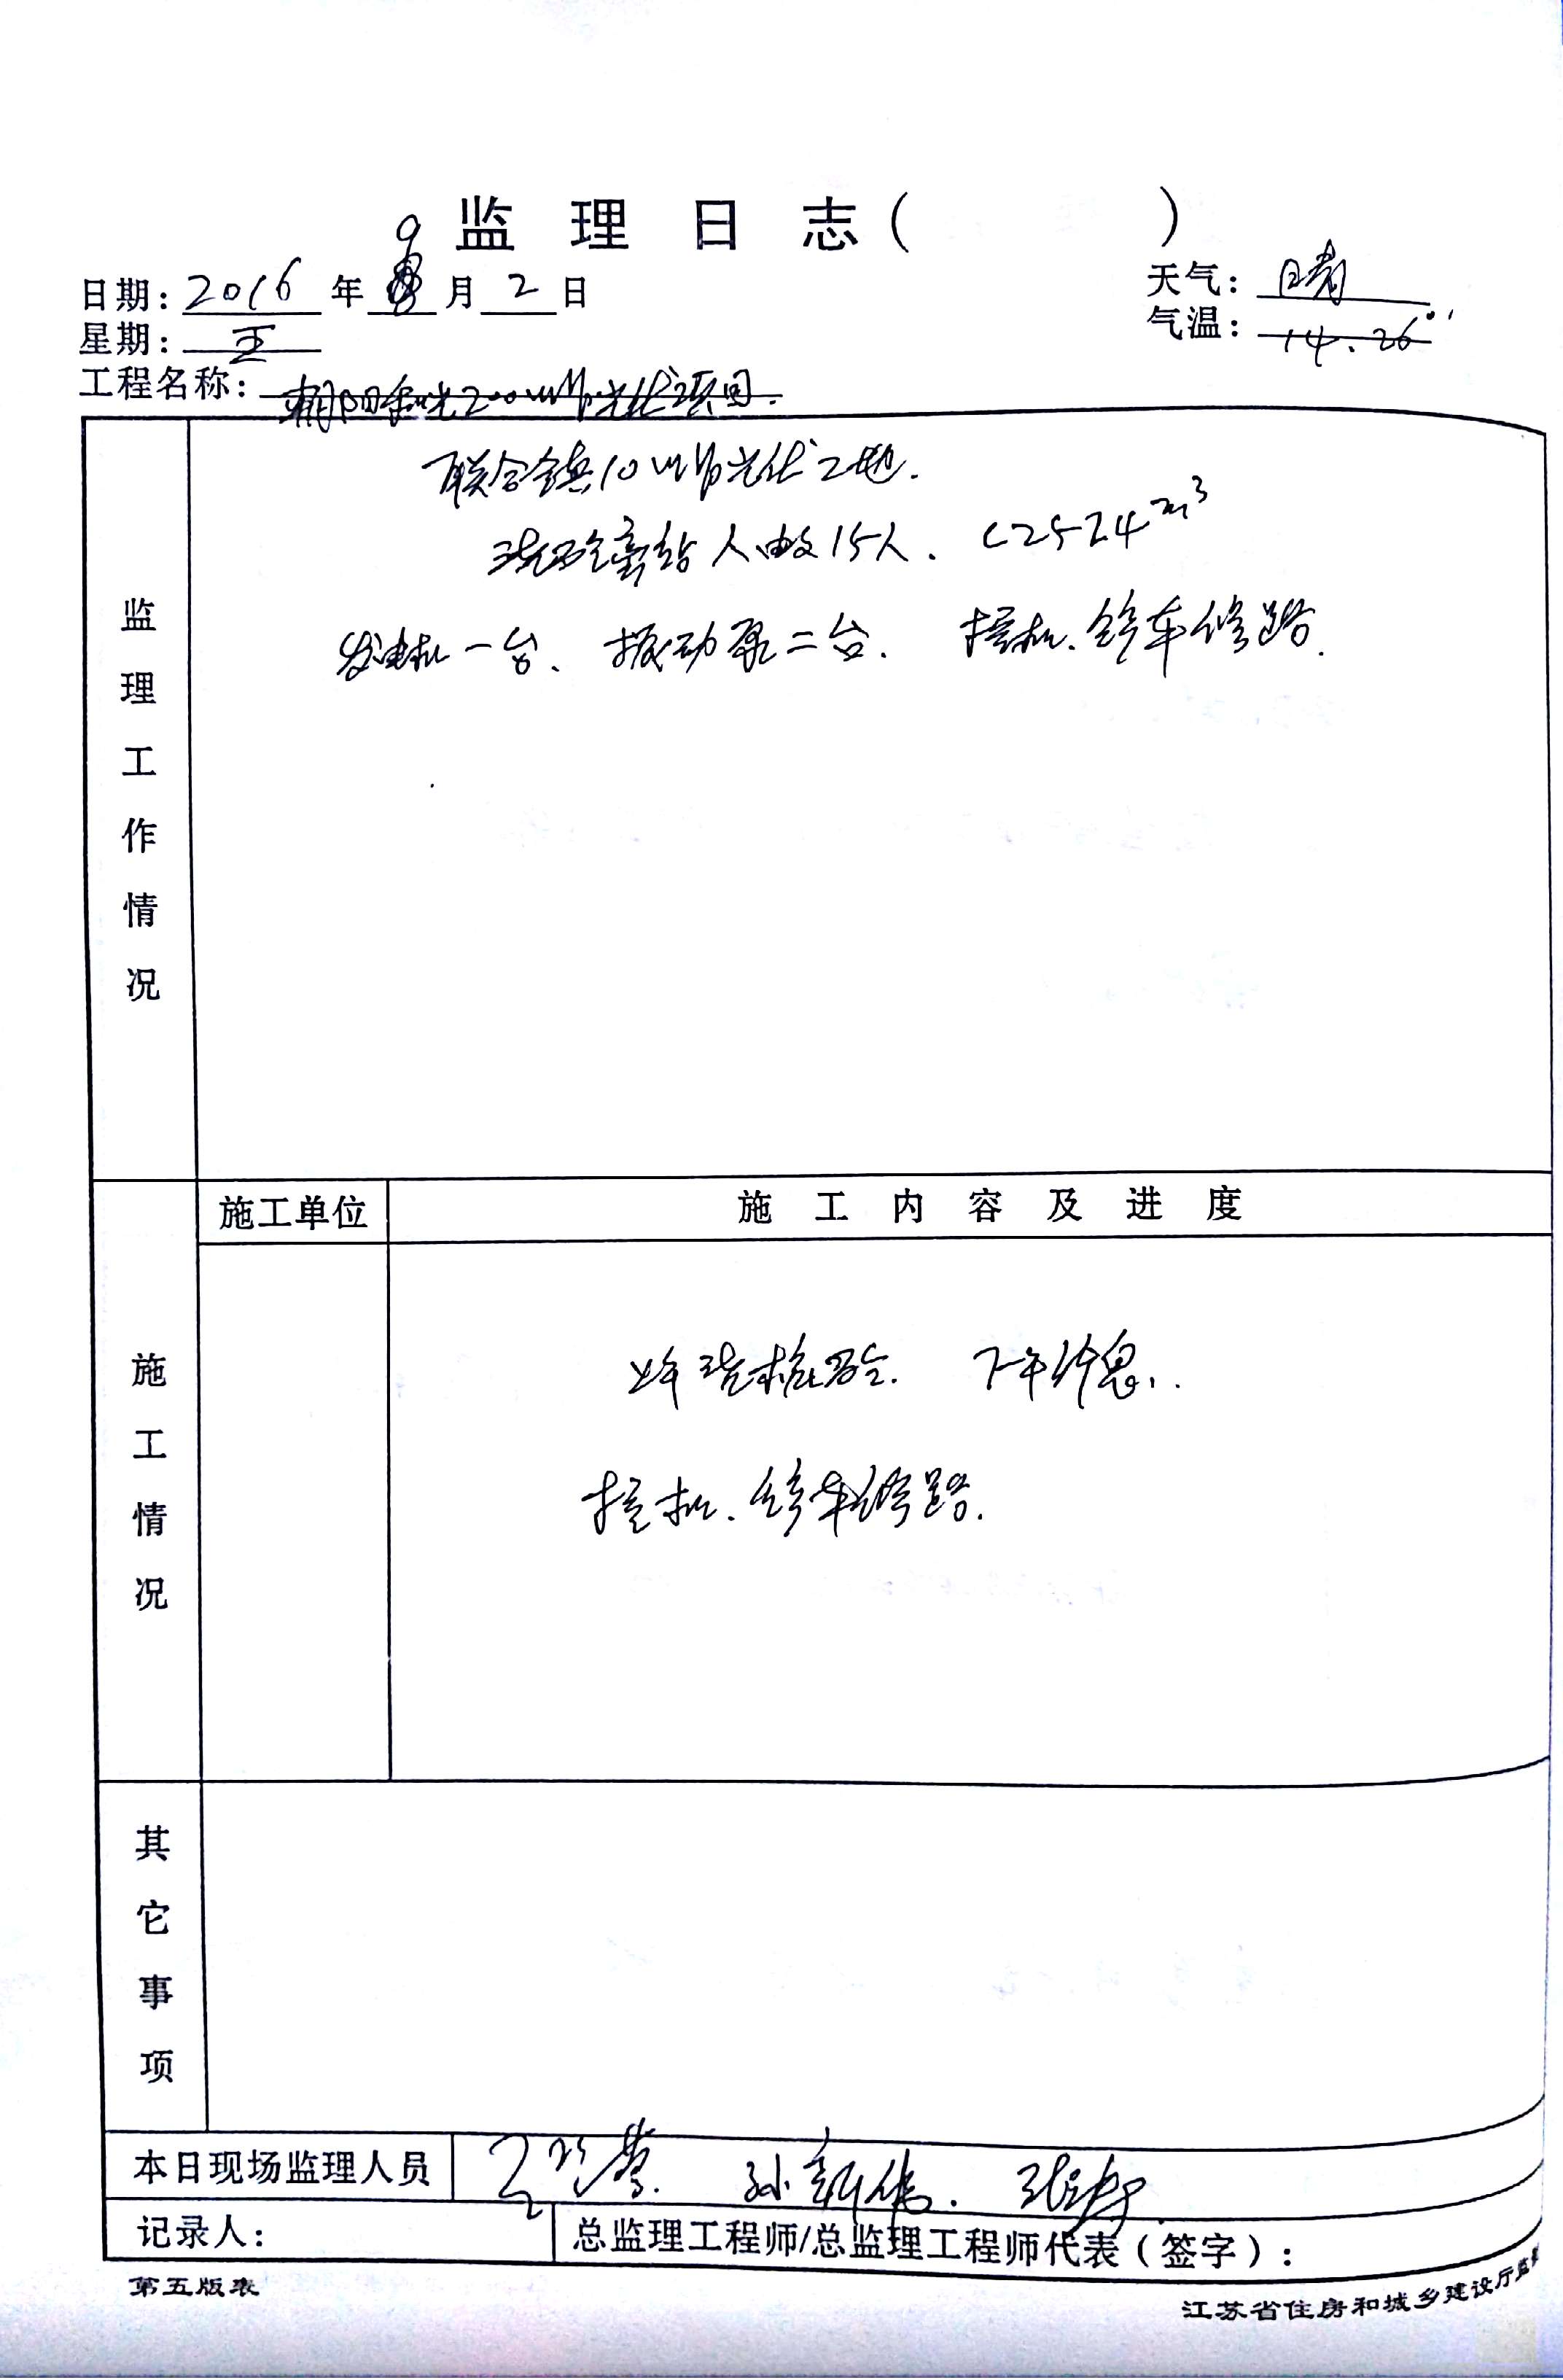 监理日志( )
日期: 2016 年 9 月 2 日
天气: 晴
星期: 五
气温: 14.26°
工程名称: 朝阳和光200MW光伏项目.
监理工作情况
联合镇10MW光伏工地.
浇砼 人数15人. C25 24m³
发电机一台、振动泵二台. 挖机、铲车修路.
施工情况
施工单位
施工内容及进度
上午浇桩砼. 下午休息.
挖机、铲车修路.
其它事项
本日现场监理人员
孙新伟.
记录人:
总监理工程师/总监理工程师代表(签字):
第五版表
江苏省住房和城乡建设厅监